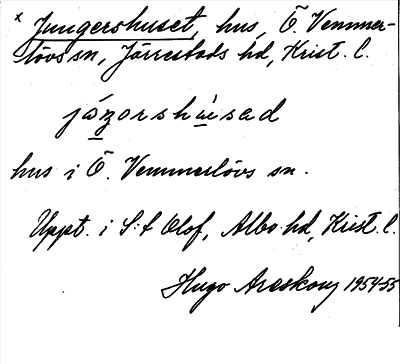 x Jungershuset, hus, Ö. Vemmer-
lövs sn, Järrestads hd, Krist. l.
jáŋorshúsad
hus i Ö. Vemmerlövs sn.
Uppt. i S:t Olof, Albo hd, Krist. l.
Hugo Areskoug 1954-55